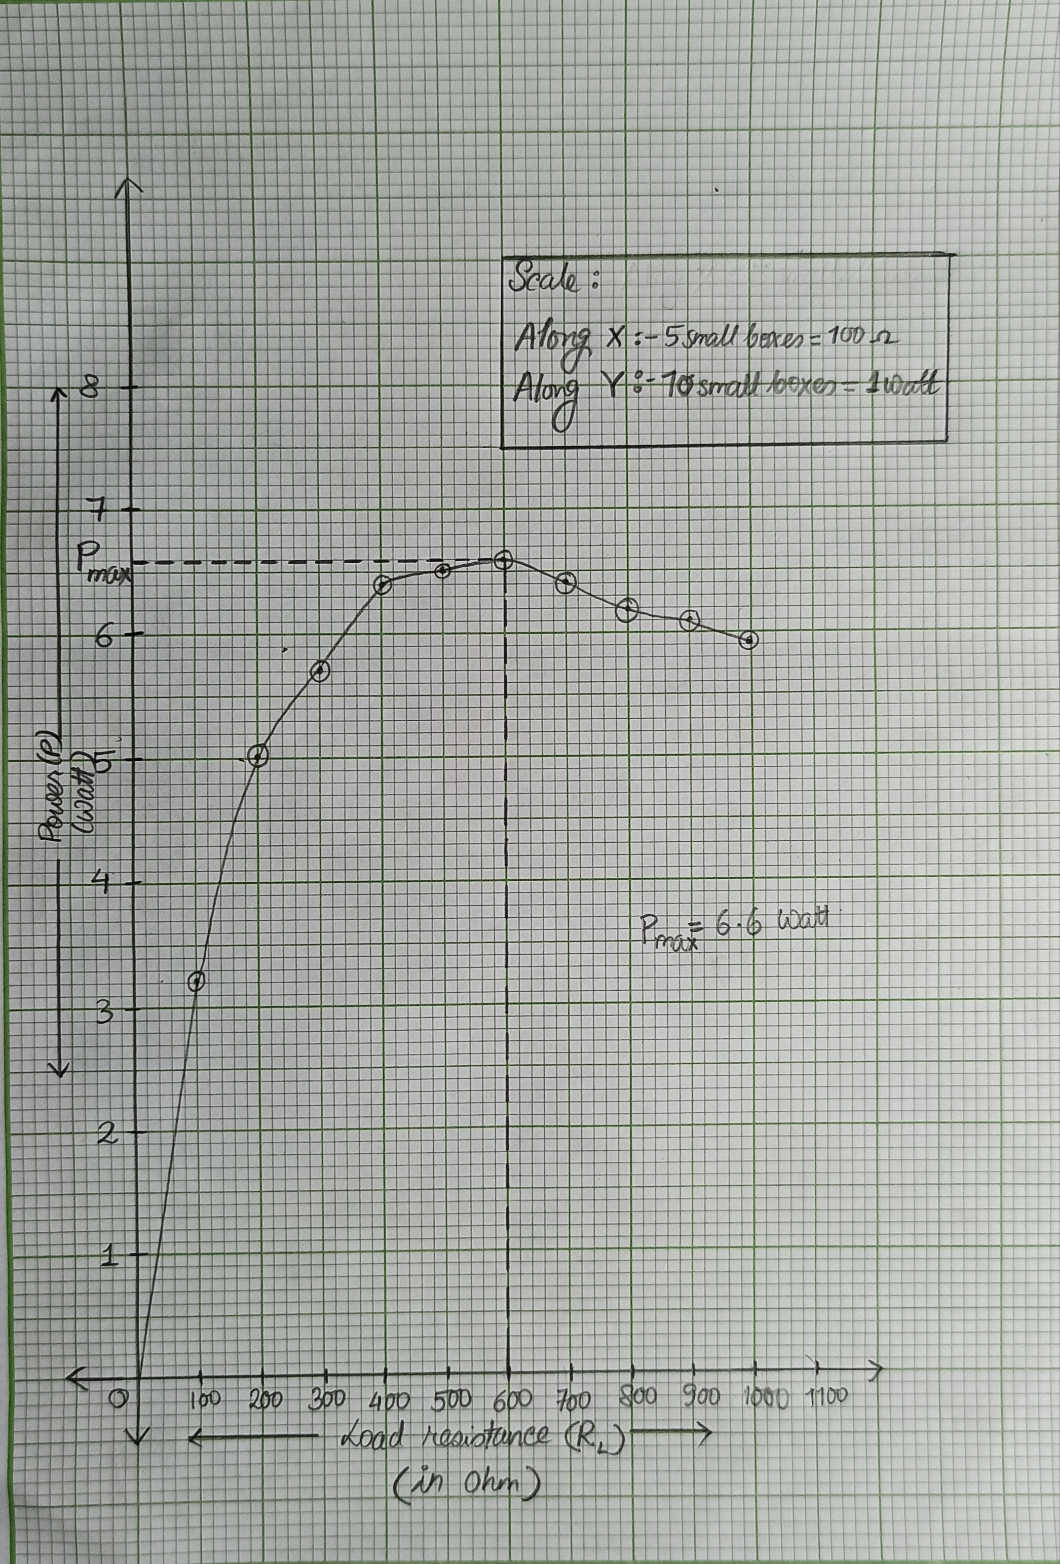 Scale :
Along X :- 5 small boxes = 100 Ω
Along Y :- 10 small boxes = 1 watt
8
7
Pmax
6
5
Power (P)
(Watt)
4
Pmax = 6.6 Watt
3
2
1
0 100 200 300 400 500 600 700 800 900 1000 1100
Load resistance (RL)
(in Ohm)